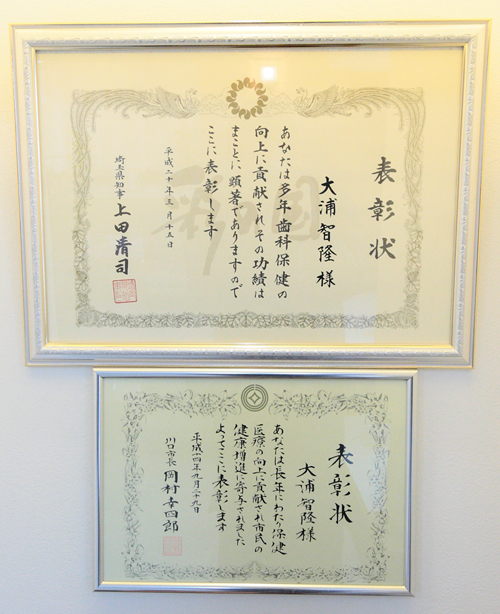 表彰状
大浦智隆様
あなたは多年歯科保健の
向上に貢献されその功績は
まことに顕著でありますので
ここに表彰します
平成二十年三月十五日
埼玉県知事 上田清司
表彰状
大浦智隆様
あなたは長年にわたり保健
医療の向上に貢献され市民の
健康増進に寄与されました
よってここに表彰します
平成二四年九月二十九日
川口市長 岡村幸四郎